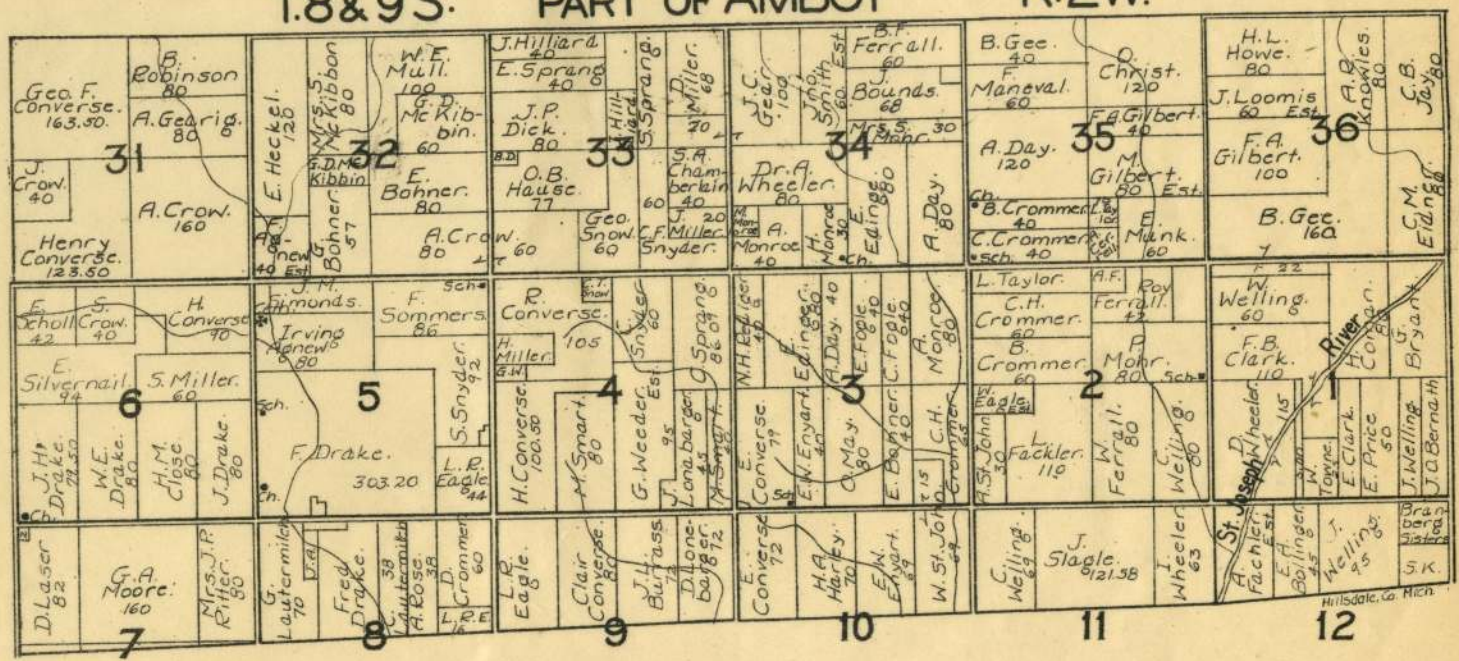 T.8&9S. PART OF AMBOY R.2W.
Geo. F.
Converse.
163.50.
B.
Robinson
80
A. Gearig.
80
31
J.
Crow.
40
A. Crow.
160
Henry
Converse.
123.50
E. Heckel.
120
Mrs. S.
McKibbon
80
W. E.
Mull.
100
G. D.
McKib-
bin.
60
32
G.D.Mc
Kibbin
E.
Bohner.
80
G.
Bohner.
57
A. Crow.
80
Ag-
new
40 Est.
J. Hilliard
40
E. Sprang
40
J. P.
Dick.
80
Hill-
iard.
S. Sprang.
D.
Miller.
68
20
33
B.D.
O. B.
Hause.
77
S. A.
Cham-
berlain
40
60
Geo.
Snow.
60
60
J. 20
Miller
C.F.
Snyder.
J. C.
Gear.
100
Jno.
Smith
60 Est
B. F.
Ferrall.
60
J.
Bounds.
68
Mrs. S. 30
Mohr.
34
Dr. A.
Wheeler.
80
A.
Monroe
40
H.
Monroe
30
Ch.
E.
Edinge.
80
A. Day.
80
B. Gee.
40
F.
Maneval.
60
O.
Christ.
120
F.A. Gilbert.
40
35
A. Day.
120
M.
Gilbert.
80 Est.
Ch.
B. Crommer
40
C. Crommer
40
Sch.
E.
Munk.
60
H. L.
Howe.
80
J. Loomis
60 Est.
A. R.
Knowles.
80
C. B.
Jay.
80
36
F. A.
Gilbert.
100
B. Gee.
160
C. M.
Eidner.
80
E.
Scholl
42
S.
Crow.
40
H.
Converse
90
E.
Silvernail
94
S. Miller.
60
6
J. H.
Drake.
79.50
W. E.
Drake.
80
H. M.
Close
80
J. Drake.
80
Ch.
J. M.
Simonds.
Irving
Agnew
80
F.
Sommers.
86
Sch.
5
Sch.
S. Snyder.
92
F. Drake.
303.20
L. R.
Eagle
44
Ch.
R.
Converse.
105
E.T.
Snow
H.
Miller.
G.W.
C.
Snyder
60
O. Sprang.
86.09
4
H. Converse.
100.50
M. Smart.
80
G. Weeder.
95
Est.
J.
Lonabarger.
45
M. Smart.
40
N.H. Rediger
40
E.
Edinger.
80
A. Day. 40
E. Fogle. 40
C. Fogle.
40
A.
Monroe.
80
3
E.
Converse.
79
E.W. Enyart.
40
O. May.
80
E. Bohner.
40
C. H.
Crommer.
65
15
Sch.
L. Taylor.
C. H.
Crommer.
60
A.F.
Roy
Ferrall.
42
B.
Crommer.
60
P.
Mohr.
80
Sch.
2
W.
Eagle.
Est
A. St. John
30
L.
Fackler.
110
W.
Ferrall.
80
C.
Welling.
80
F. 22
W.
Welling.
60
F. B.
Clark.
110
River
H.
Conran.
80
G.
Bryant
1
D.
Wheeler.
115
W.
Towne.
E. Clark.
E. Price
50
J. Welling.
J. O. Bernath
St. Joseph
D. Laser
82
G. A.
Moore.
160
Mrs. J. P.
Ritter.
80
7
G.
Lautermilch
70
J.A.
Fred
Drake.
C. 38
Lautermilch
A. Rose.
38
D.
Crommer.
60
L. R. E.
8
L. R.
Eagle.
Clair
Converse.
80
J. L.
Burfass.
72
D. Lone-
barger.
72
9
E.
Converse
72
H. A.
Harley.
70
E. W.
Enyart.
69
W. St. John
69
10
C.
Welling.
69
J.
Slagle.
121.58
I.
Wheeler.
63
11
A.
Fackler
Est.
E. A.
Bollinger.
45
J.
Welling
95
Bran-
berg
Sisters
S. K.
Hillsdale, Co. Mich.
12